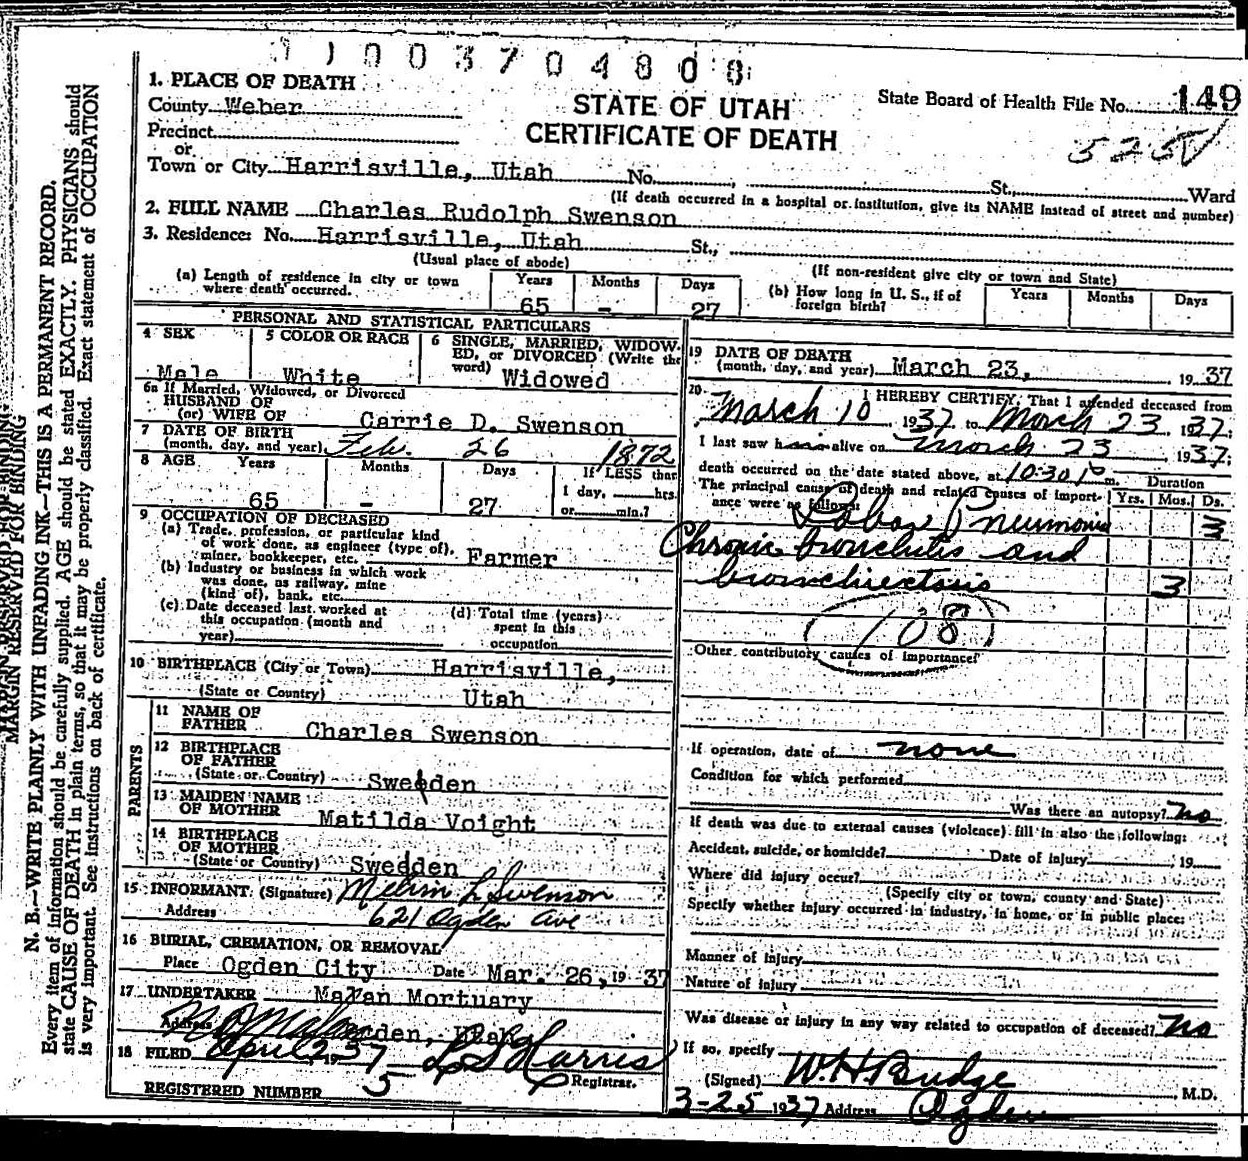 11003704808
1. PLACE OF DEATH
County Weber
STATE OF UTAH
CERTIFICATE OF DEATH
State Board of Health File No. 149
525
Precinct
or
Town or City Harrisville, Utah No. St., Ward
(If death occurred in a hospital or institution, give its NAME instead of street and number)
2. FULL NAME Charles Rudolph Swenson
3. Residence: No. Harrisville, Utah St.,
(Usual place of abode)
(If non-resident give city or town and State)
(a) Length of residence in city or town where death occurred. Years 65 Months - Days 27
(b) How long in U. S., if of foreign birth? Years Months Days
PERSONAL AND STATISTICAL PARTICULARS
4 SEX Male
5 COLOR OR RACE White
6 SINGLE, MARRIED, WIDOW-
ED, or DIVORCED (Write the
word) Widowed
6a If Married, Widowed, or Divorced
HUSBAND OF
(or) WIFE OF Carrie D. Swenson
7 DATE OF BIRTH
(month, day, and year) Feb. 26 1872
8 AGE Years 65 Months - Days 27 If LESS than
1 day, hrs.
or min.?
9 OCCUPATION OF DECEASED
(a) Trade, profession, or particular kind
of work done, as engineer (type of),
miner, bookkeeper, etc. Farmer
(b) Industry or business in which work
was done, as railway, mine
(kind of), bank, etc.
(c) Date deceased last worked at
this occupation (month and
year)
(d) Total time (years)
spent in this
occupation
10 BIRTHPLACE (City or Town) Harrisville,
(State or Country) Utah
PARENTS
11 NAME OF
FATHER Charles Swenson
12 BIRTHPLACE
OF FATHER
(State or Country) Sweden
13 MAIDEN NAME
OF MOTHER Matilda Voight
14 BIRTHPLACE
OF MOTHER
(State or Country) Sweden
15 INFORMANT (Signature) Melvin L Swenson
Address 621 Ogden Ave
16 BURIAL, CREMATION, OR REMOVAL
Place Ogden City Date Mar. 26, 19 37
17 UNDERTAKER Malan Mortuary
Address Ogden, Utah
18 FILED April 2 1937 L S Harris
Registrar.
REGISTERED NUMBER 5
19 DATE OF DEATH
(month, day, and year) March 23, 19 37
20. I HEREBY CERTIFY, That I attended deceased from
March 10, 1937, to March 23, 1937;
I last saw him alive on March 23 1937;
death occurred on the date stated above, at 10:30 p m. Duration
The principal cause of death and related causes of import- Yrs. Mos. Ds.
ance were as follows: Lobar Pneumonia 3
Chronic bronchitis and
bronchiectasis 3
108
Other contributory causes of importance:
If operation, date of none
Condition for which performed
Was there an autopsy? no
If death was due to external causes (violence) fill in also the following:
Accident, suicide, or homicide? Date of injury 19
Where did injury occur?
(Specify city or town, county and State)
Specify whether injury occurred in industry, in home, or in public place:
Manner of injury
Nature of injury
Was disease or injury in any way related to occupation of deceased? no
If so, specify
(Signed) W. H. Budge, M.D.
3-25 1937 Address Ogden
MARGIN RESERVED FOR BINDING
N. B.—WRITE PLAINLY WITH UNFADING INK—THIS IS A PERMANENT RECORD.
Every item of information should be carefully supplied. AGE should be stated EXACTLY. PHYSICIANS should
state CAUSE OF DEATH in plain terms, so that it may be properly classified. Exact statement of OCCUPATION
is very important. See instructions on back of certificate.